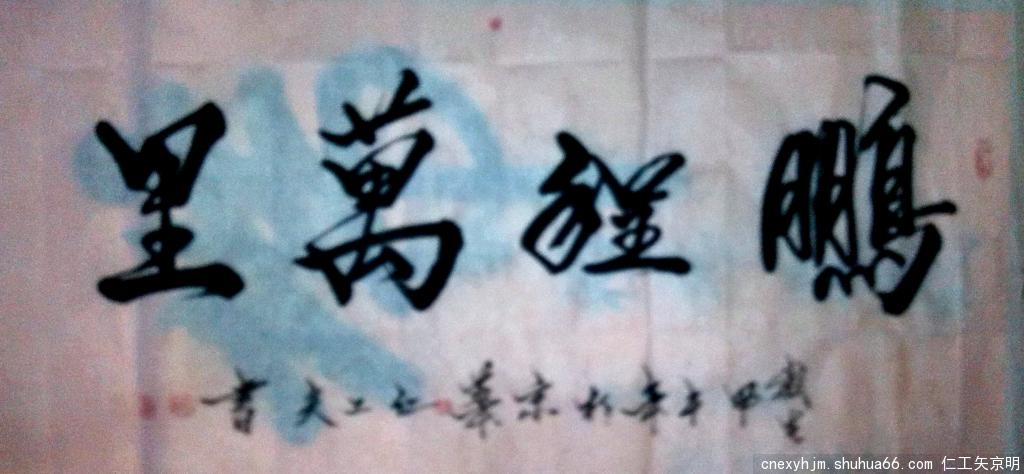 鵬程萬里
甲午年於京華 工夫書
cnexyhjm. shuhua66. com 仁工矢京明